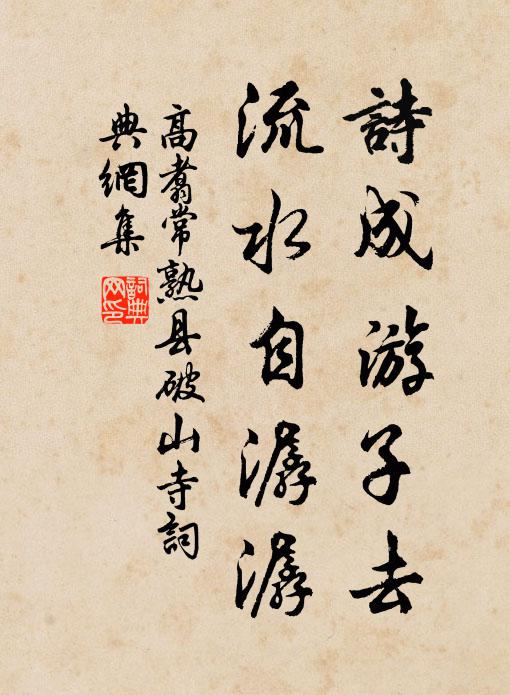 詩成游子去
流水自潺潺
高翥常熟县破山寺詞
典網集
詞典网印